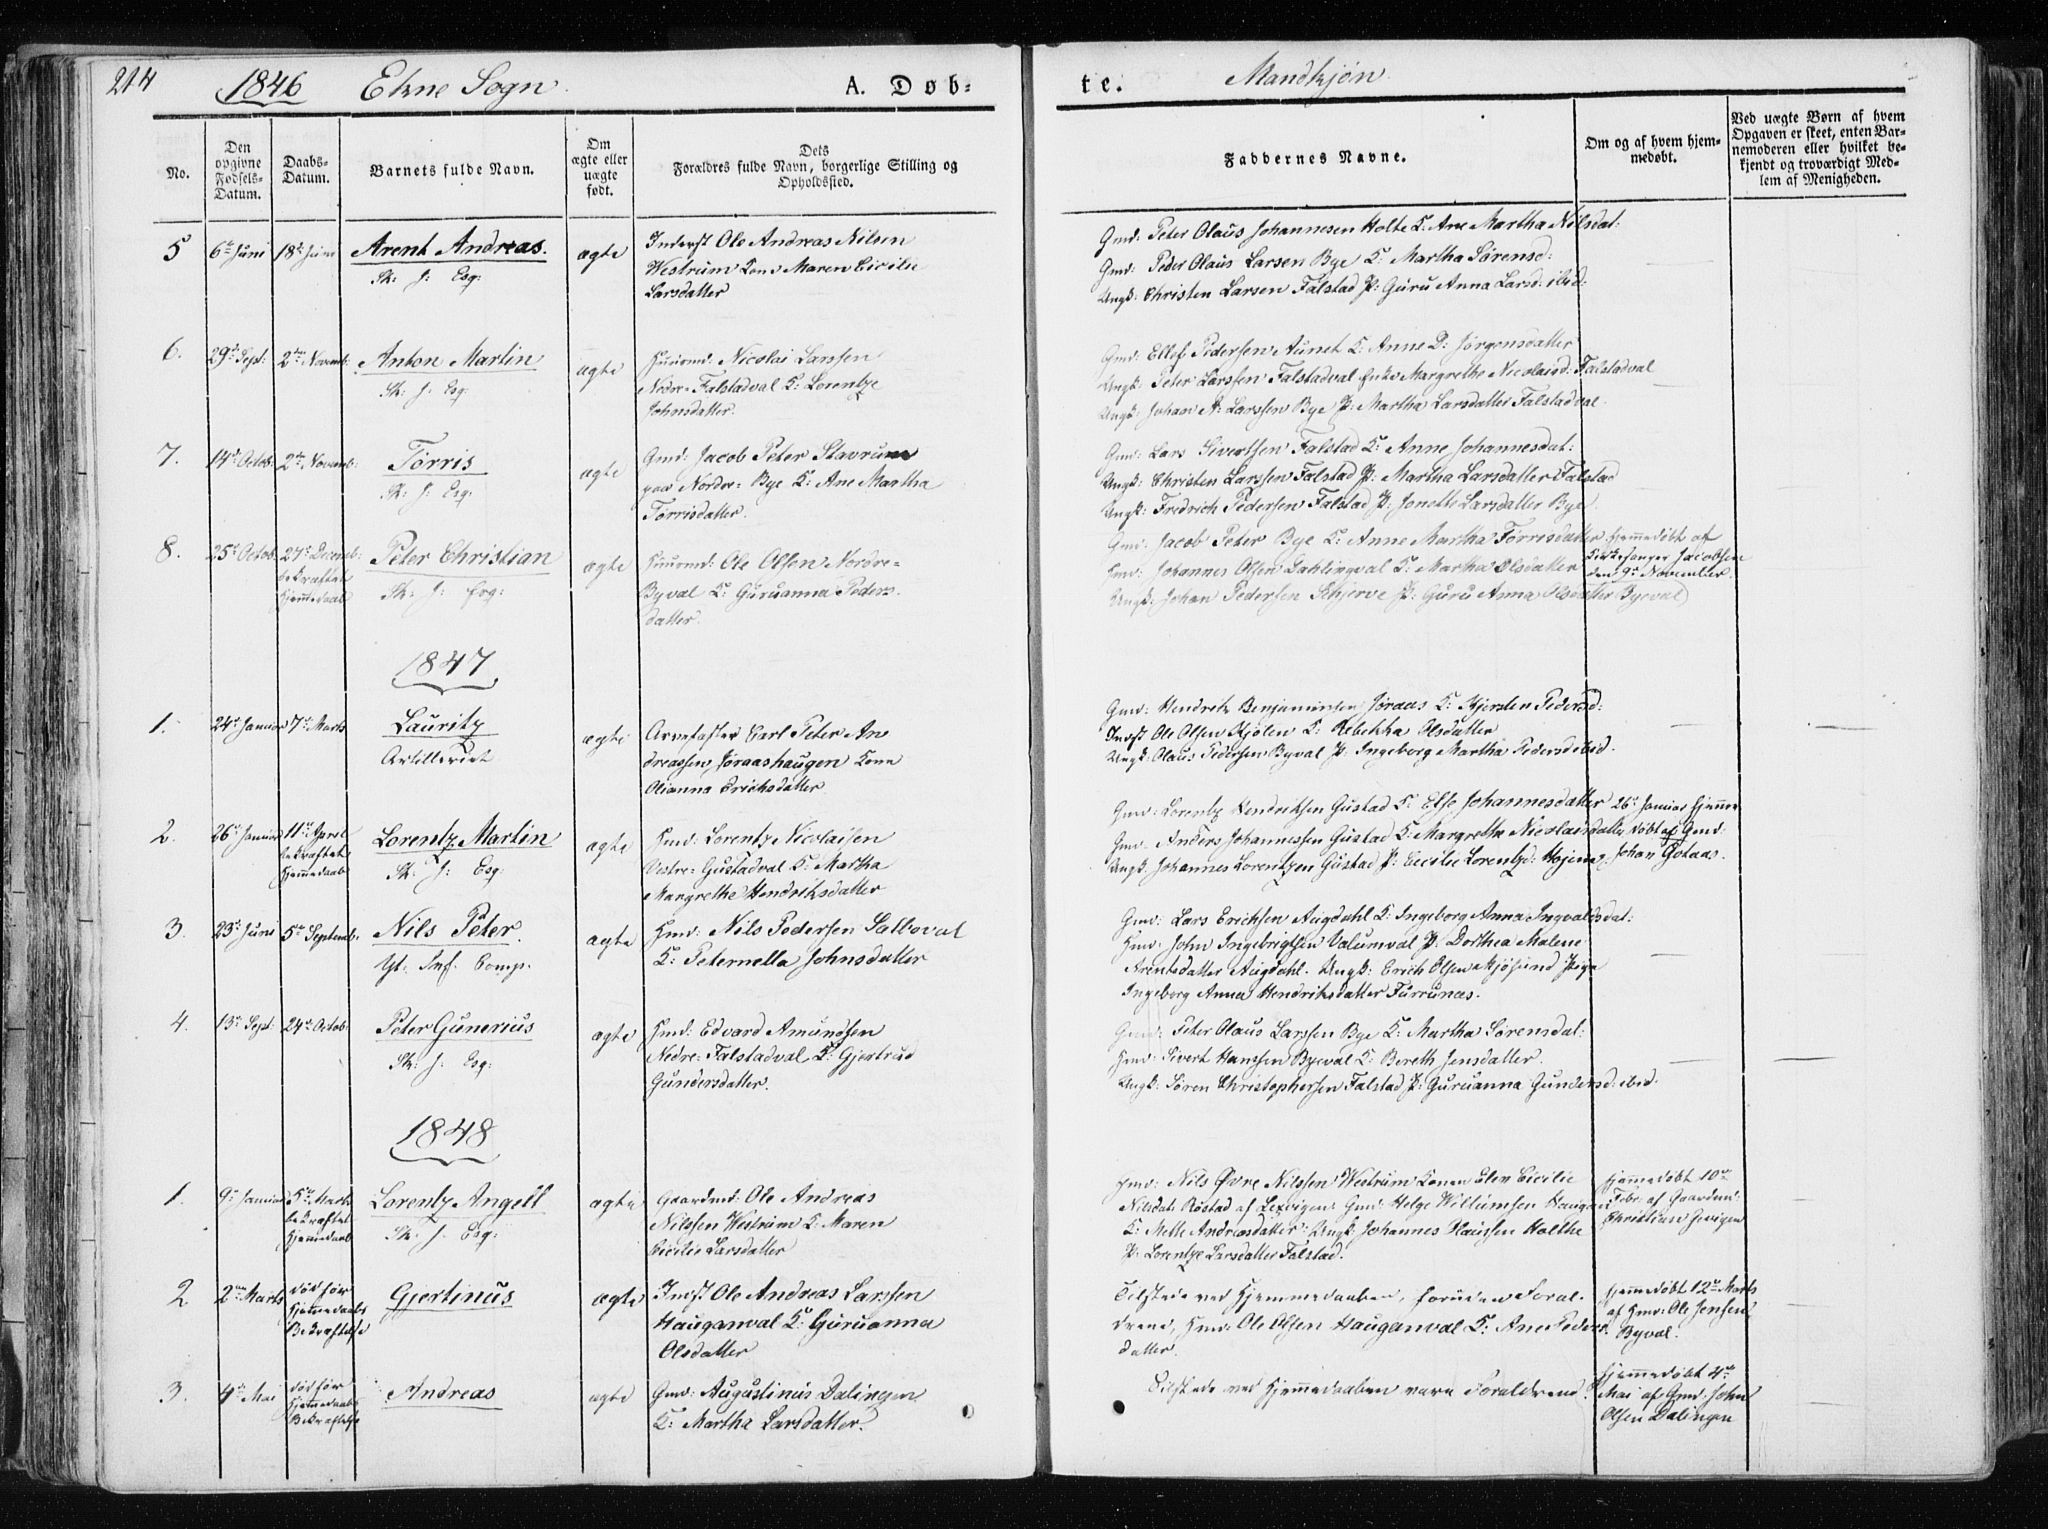 214
1846 Ekne Sogn. A. Døb- te. Mandkjøn.
No.
Den opgivne Fødsels-Datum.
Daabs-Datum.
Barnets fulde Navn.
Om ægte eller uægte født.
Dets Forældres fulde Navn, borgerlige Stilling og Opholdssted.
Faddernes Navne.
Om og af hvem hjemmedøbt.
Ved uægte Børn af hvem Opgaven er skeet, enten Barnemoderen eller hvilket bekjendt og troværdigt Medlem af Menigheden.
5 6te Juni 18de Juni Arent Andreas. ægte
Sk: J: Esq:
Inderst Ole Andreas Nilsen
Westrum Kone Maren Cicilie
Larsdatter
Gmd: Peter Olaus Johannesen Holte K: Ane Martha Nilsdat:
Gmd: Peder Olaus Larsen Bye K: Martha Sørensd:
Ungk: Christen Larsen Falstad P: Guru Anna Larsd: ibid:
6. 29de Sept: 2den Novemb: Anton Martin ægte
Sk: J: Esq:
Huusmd: Nicolai Larssen
Nedre-Falstadval K: Lorentze
Johnsdatter.
Gmd: Ellef Pedersen Aunet K: Anne D: Jørgensdatter
Ungk: Peter Larssen Falstadval Enke Margrethe Nicolaisd: Falstadval
Ungk: Johan A: Larssen Bye P: Martha Larsdatter Falstadval.
7. 14de Octob: 2den Novemb: Tørris ægte
Sk: J: Esq:
Gmd: Jacob Peter Stavrum
paa Nordre-Bye K: Ane Martha
Tørrisdatter.
Gmd: Lars Sivertsen Falstad K: Anne Johannesdat:
Ungk: Christen Larssen Falstad P: Martha Larsdatter Falstad
Ungk: Fredrich Pedersen Falstad P: Jonette Larsdatter Bye.
8. 25de Octob: 27de Decemb: Peter Christian ægte
bekræftet
Hjemmedaab
Sk: J: Esq:
Huusmd: Ole Olsen Nordre-
Byval K: Guruanna Peders-
datter.
Gmd: Jacob Peter Bye K: Anne Martha Tørrisdatter
Hmd: Johannes Olsen Dahlingval K: Martha Olsdatter
Ungk: Johan Pedersen Skjerve P: Guru Anna Olsdatter Byeval
Hjemmedøbt af
Kirkesanger Jacobsen
den 9de November.
1847
1. 24de Januar 7de Marts Lauritz ægte
Artilleriet
Arvefæster Carl Peter An
dreassen Føraashaugen Kone
Olianna Erichsdatter.
Gmd: Hendrik Benjaminsen Føraas K: Kjersten Pedersd:
Indst Ole Olsen Kjølen K: Rebekka Olsdatter
Ungk: Olaus Pedersen Byval P: Ingeborg Martha Pedersd ibid.
2. 26de Januar 11te April Lorentz Martin ægte
bekræftet
Hjemmedaab
Sk: J: Esq:
Hmd: Lorentz Nicolaisen
Vestre-Gustadval K: Martha
Margrethe Hendriksdatter
Gmd: Lorentz Hendriksen Gustad K: Else Johannesdatter
Gmd: Anders Johannessen Gustad K: Margretha Nicolaisdatter
Ungk: Johannes Lorentzen Gustad P: Cecilie Lorentzd: Hojem
26de Januar hjemme-
døbt af Gmd:
Johan Gotaas.
3. 23de Juni 5te Septemb: Nils Peter. ægte
Yt: Inf: Comp.
Hmd: Nils Pedersen Salboval
K: Peternella Johnsdatter
Gmd: Lars Erichsen Augdahl K: Ingeborg Anna Ingvaldsdat:
Hmd: John Ingebrigtsen Valumval P: Dorthea Malene
Arentsdatter Augdahl. Ungk: Erich Olsen Mjøsund Pige
Ingeborg Anna Hendriksdatter Furrunæs.
4. 13de Sept: 24de Octob: Peter Gunerius ægte
Sk: J: Esq:
Hmd: Edvard Amundsen
Nedre-Falstadval K: Gjertrud
Gundersdatter.
Gmd: Peter Olaus Larssen Bye K: Martha Sørensdat:
Hmd: Sivert Hanssen Byeval K: Bereth Jensdatter.
Ungk: Søren Christophersen Falstad P: Guruanna Gundersd: ibid.
1848
1. 9de Januar 5te Marts Lorentz Angell ægte
bekræftet
Hjemmedaab
Sk: J: Esq:
Gaardmd: Ole Andreas
Nilssen Westrum K: Maren
Cicilie Larsdatter
Hmd: Nils Øvre Nilssen Westrum Konen Elen Cicilie
Nilsdatr Røstad af Lexvigen. Gmd: Helge Willumsen Haugan
K: Mette Andreasdatter: Ungk: Johannes Klaussen Holthe
P: Lorentze Larsdatter Falstad.
Hjemmedøbt 10de
Febr: af Gaardmd:
Christian
2 2den Marts død før Gjertinus ægte
Hjemmedaabs
Bekræftelse
Indst Ole Andreas Larssen
Hauganval K: Guruanna
Olsdatter
Tilstede ved Hjemmedaaben, foruden Foræl-
drene, Hmd: Ole Olsen Hauganval K: Ane Peders-
datter.
Hjemmedøbt 12te Marts
af Hmd: Ole Jensen
Byval.
3. 4de Mai død før Andreas ægte
Hjemmedaabs
Bekræftelse
Gmd: Augustinus Dalingen
K: Martha Larsdatter.
Tilstede ved Hjemmedaaben vare Forældrene.
Hjemmedøbt 4de
Mai af Gmd: John
Olsen Dalingen